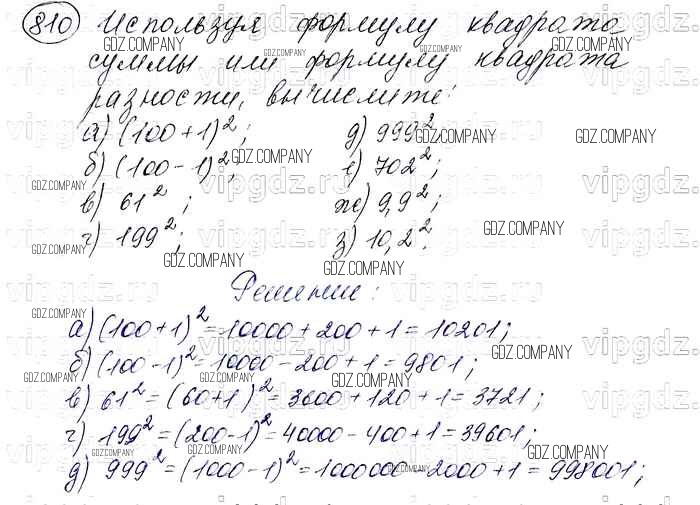 810 Используя формулу квадрата
суммы или формулу квадрата
разности, вычислите:
а) (100+1)²; д) 999²;
б) (100-1)²; е) 702²;
в) 61²; ж) 9,9²;
г) 199²; з) 10,2².
Решение:
а) (100+1)²=10000+200+1=10201;
б) (100-1)²=10000-200+1=9801;
в) 61²=(60+1)²=3600+120+1=3721;
г) 199²=(200-1)²=40000-400+1=39601;
д) 999²=(1000-1)²=1000000-2000+1=998001;
GDZ.COMPANY
vipgdz.ru